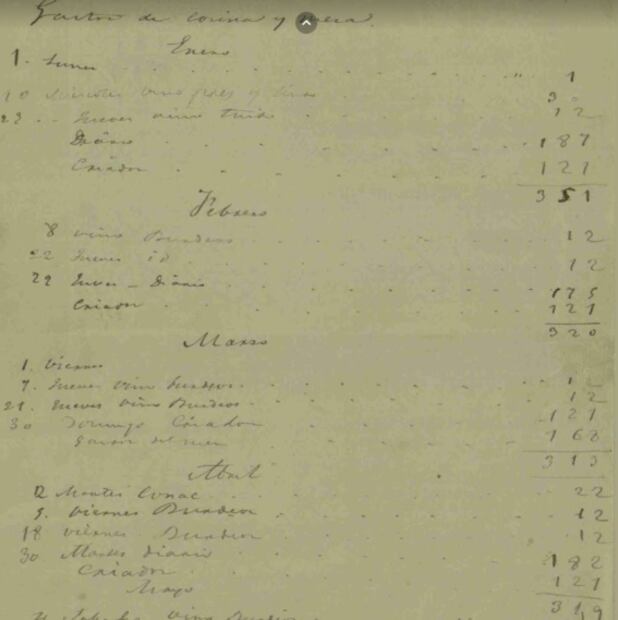 Gastos de cocina y mesa.
Enero
1. Lunes " 1
10 Miercoles vino y 30
23 Jueves vino tinto 12
Diario 187
Criados 121
351
Febrero
8 vino Burdeos 12
22 Jueves id 12
29 Jueves - Diario 175
Criados 121
320
Marzo
1. Viernes
7. Jueves vino Burdeos 12
21. Jueves vino Burdeos 12
30 Domingo Criados 121
Gastos del mes 168
313
Abril
2 Martes Coñac 22
5. Viernes Burdeos 12
18 Viernes Burdeos 12
30 Martes diario 182
Criados 121
Mayo 319
vino